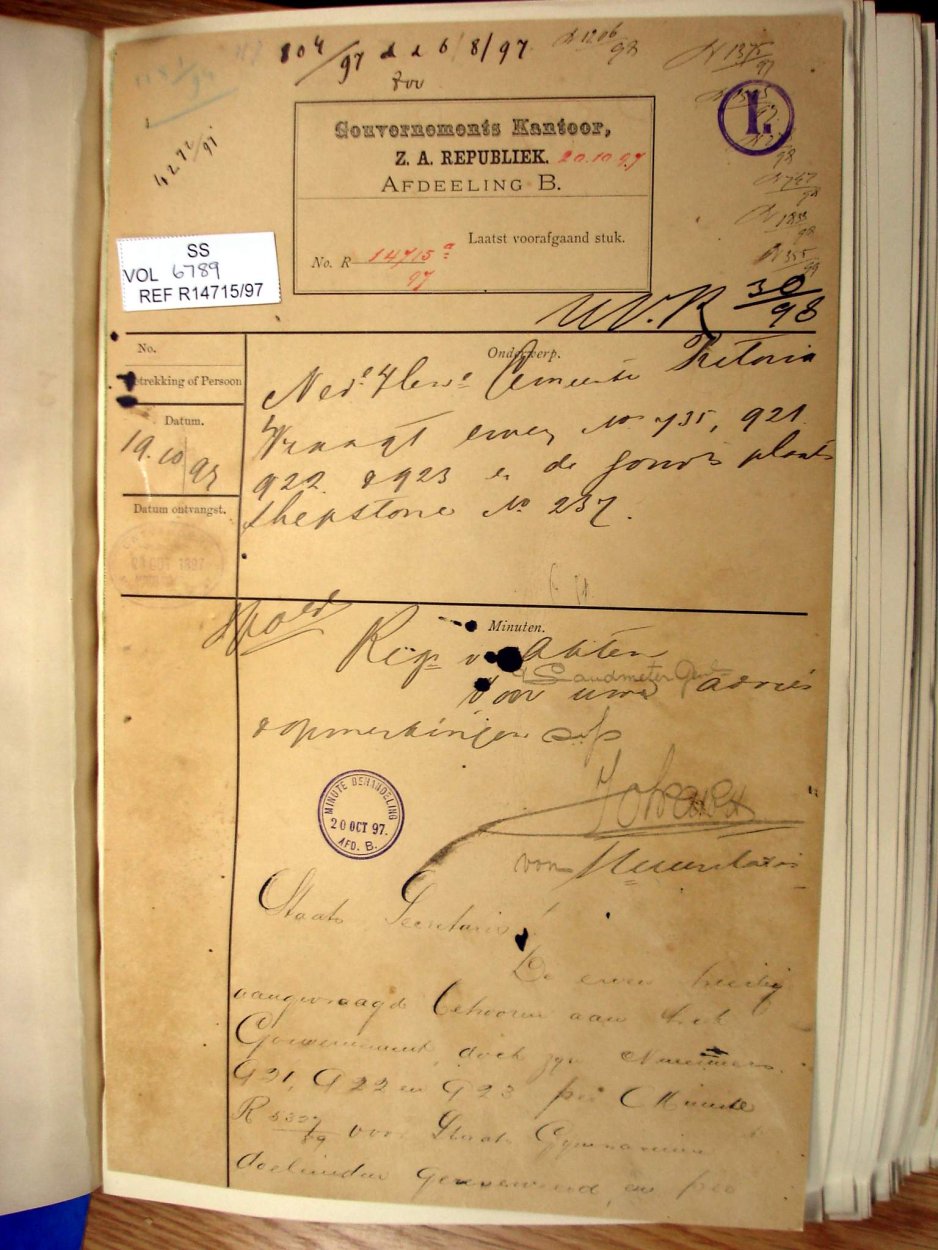 804/97 d d 6/8/97
N 1206/98
N 1375/97
4272/97
voor
I.
Gouvernements Kantoor,
Z. A. REPUBLIEK. 20.10.97
AFDEELING B.
Laatst voorafgaand stuk.
No. R 14715a/97
SS
VOL 6789
REF R14715/97
U.V.R 30/98
No.
Betrekking of Persoon
Datum.
19.10.97
Datum ontvangst.
OCT 1897
Onderwerp.
Nede Herv.e Gemeente Pretoria
Vraagt erven No 735, 921
922 & 923 en de plaats
Shepstone No 237.
Minuten.
Spoed
Reg. v Akten
& Landmeter Genl
Voor uwe advies
& opmerkingen svp
MINUTE BEHANDELING
20 OCT 97.
AFD. B.
Staats Secretaris!
De erven hierbij
aangevraagd behooren aan het
Gouvernement, doch zyn Nummers
921, 922 en 923 per Minute
R 5327/89 voor Staats Gymnasium
doeleinden gereserveerd, en per